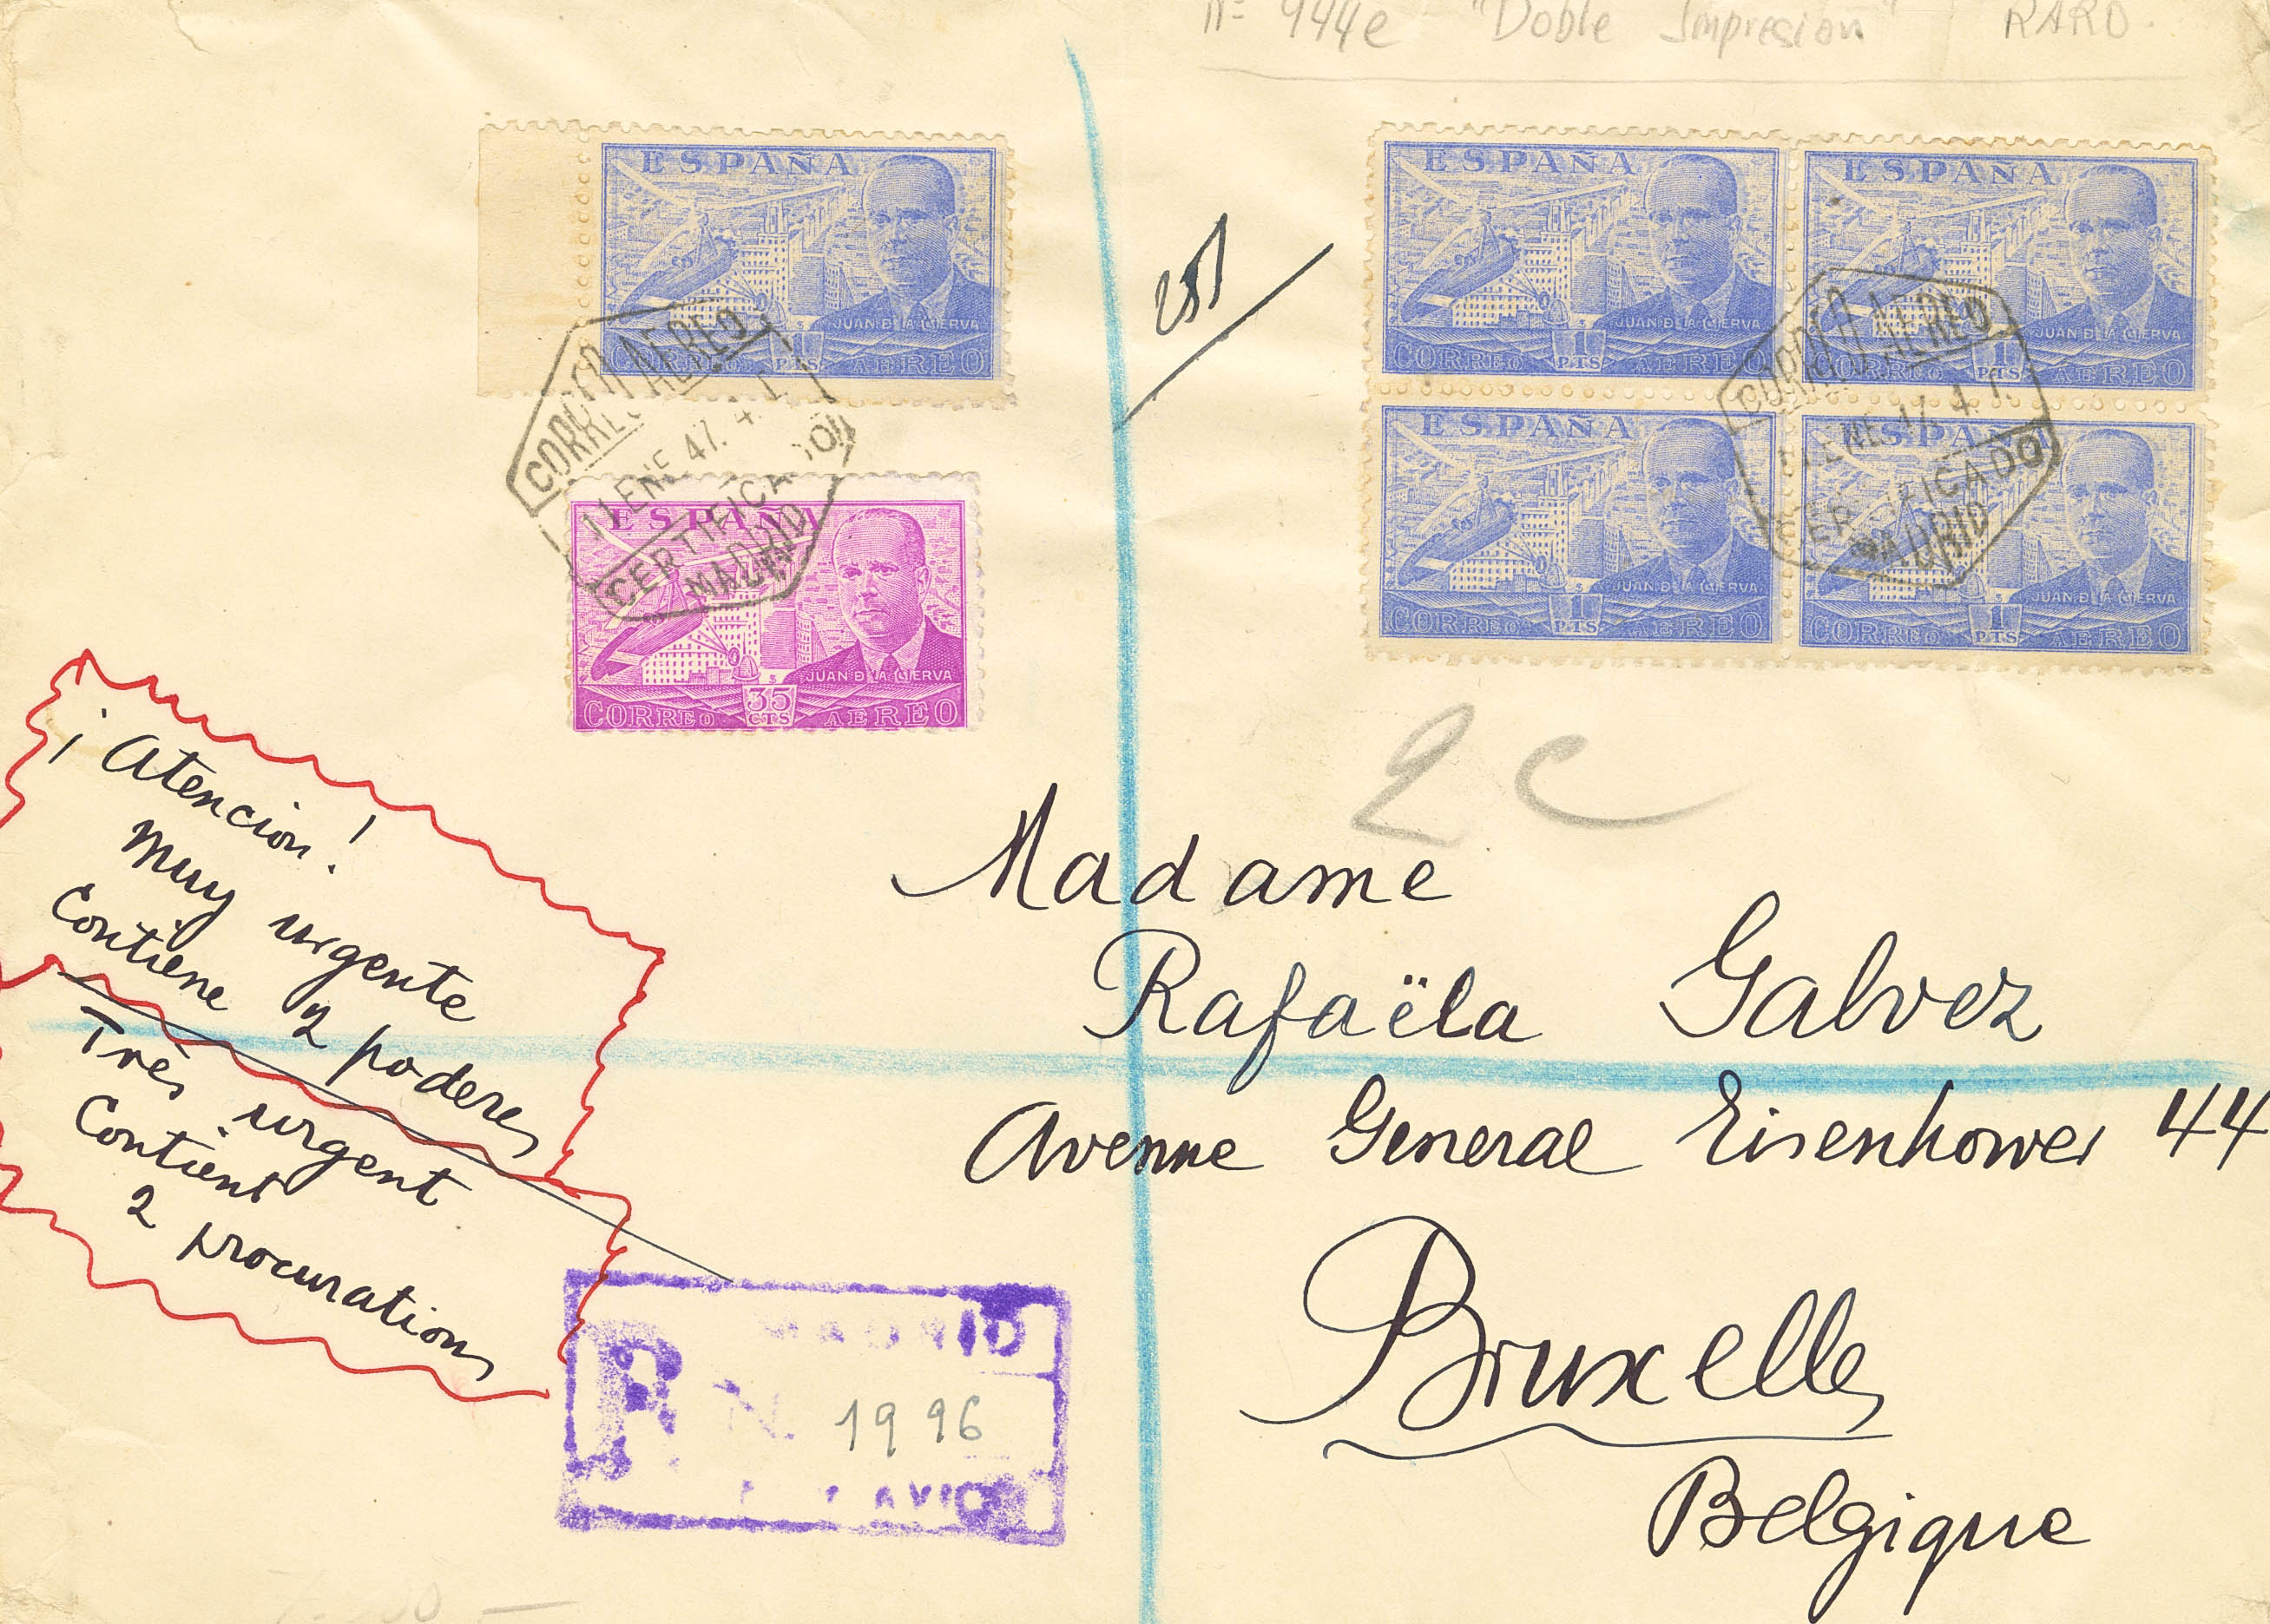 nº 944e "Doble Impresion" RARO.
ESPAÑA
JUAN DE LA CIERVA
CORREO 1 PTS AEREO
ESPAÑA
JUAN DE LA CIERVA
CORREO 1 PTS AEREO
ESPAÑA
JUAN DE LA CIERVA
CORREO 1 PTS AEREO
ESPAÑA
JUAN DE LA CIERVA
CORREO 1 PTS AEREO
ESPAÑA
JUAN DE LA CIERVA
CORREO 1 PTS AEREO
CORREO AEREO
11 ENE 47. 4. T.
CERTIFICADO
MADRID
CORREO AEREO
11 ENE 47. 4. T.
CERTIFICADO
MADRID
ESPAÑA
JUAN DE LA CIERVA
CORREO 35 CTS AEREO
2 C
¡Atencion!
Muy urgente
Contiene 2 poderes
Très urgent
Contient
2 procurations
Madame
Rafaëla Galvez
Avenue General Eisenhower 44
Bruxelles
Belgique
MADRID
R N. 1996
AVION